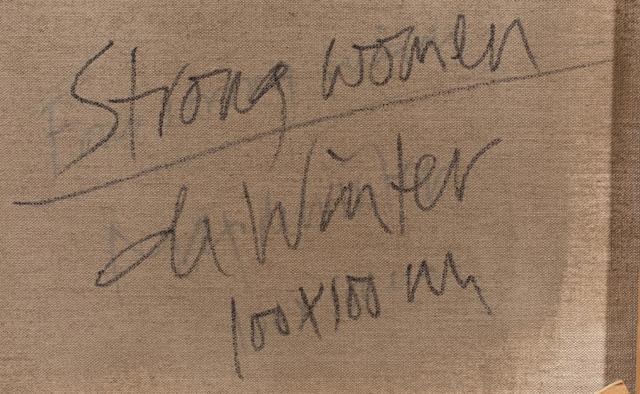 Strong women
de Winter
100x100 cm